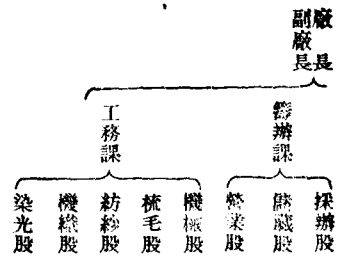 廠長
副廠長
籌辦課
工務課
採辦股
儲藏股
營業股
機械股
梳毛股
紡紗股
機織股
染光股